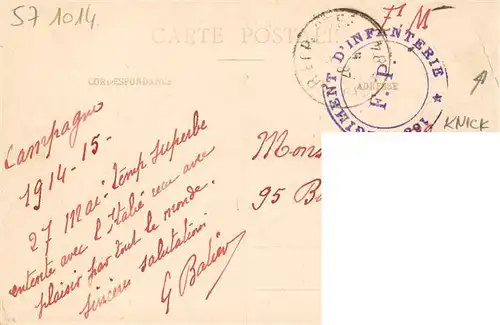 57 1014.
7f M
CARTE POSTALE
CORRESPONDANCE
ADRESSE
RÉGIMENT D'INFANTERIE
F. P.
KNICK
Campagne
1914-15-
27 Mai: temp superbe
entente avec l'Italie recu avec
plaisir par tout le monde.
Sincères salutations
G
Mons
95 Ba